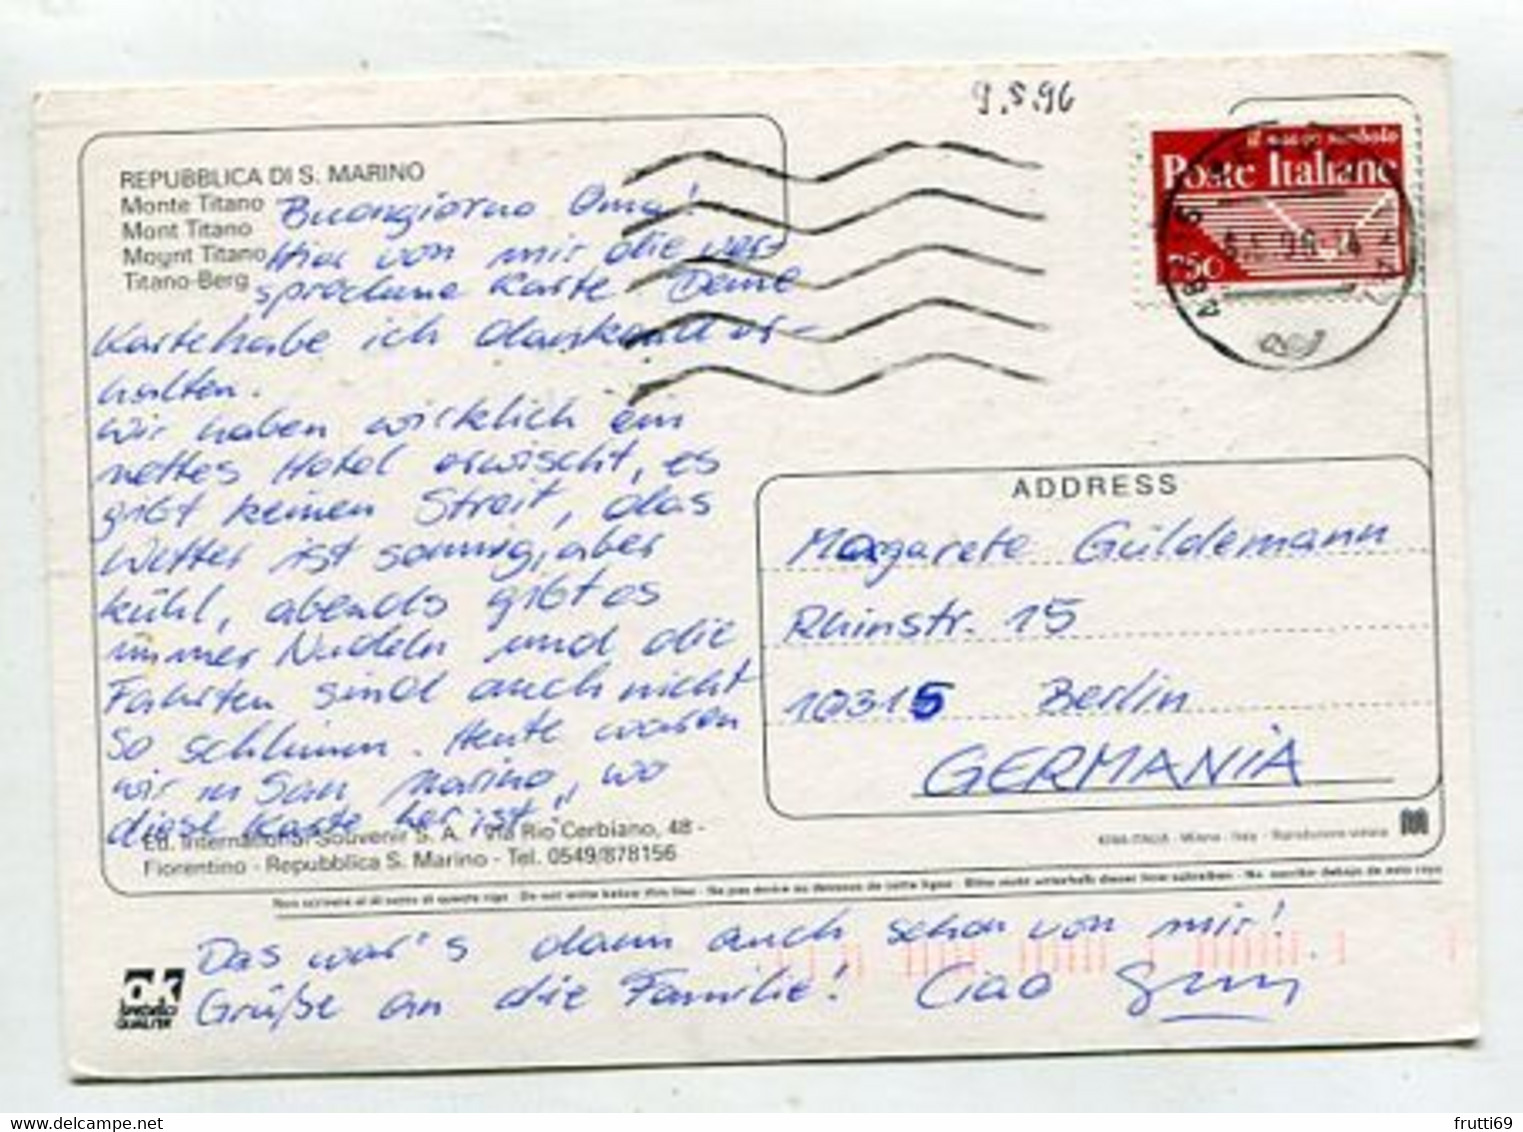 9.5.96
REPUBBLICA DI S. MARINO
Monte Titano
Mont Titano
Mount Titano
Titano-Berg
il nuovo simbolo
Poste Italiane
750
Buongiorno Oma!
Hier von mir die ver-
sprochene Karte. Deine
Karte habe ich dankend er-
halten.
Wir haben wirklich ein
nettes Hotel erwischt, es
gibt keinen Streit, das
Wetter ist sonnig, aber
kühl, abends gibt es
immer Nudeln und die
Fahrten sind auch nicht
so schlimm. Heute waren
wir in San Marino, wo
diese Karte her ist.
ADDRESS
Margarete Güldemann
Rhinstr. 15
10315 Berlin
GERMANIA
Ed. International Souvenir S. A. - Via Rio Cerbiano, 48 -
Fiorentino - Repubblica S. Marino - Tel. 0549/878156
Non scrivere al di sotto di questa riga - Do not write below this line - Ne pas écrire au dessous de cette ligne - Bitte nicht unterhalb dieser Linie schreiben - No escribir debajo de esta raya
Das war's dann auch schon von mir!
Grüße an die Familie! Ciao
ak
QUALITÄT
frutti69